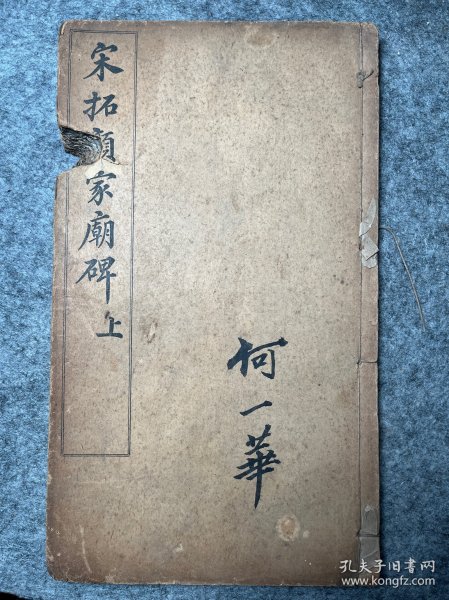 宋拓顏家廟碑上
何一華
孔夫子旧书网
www.kongfz.com